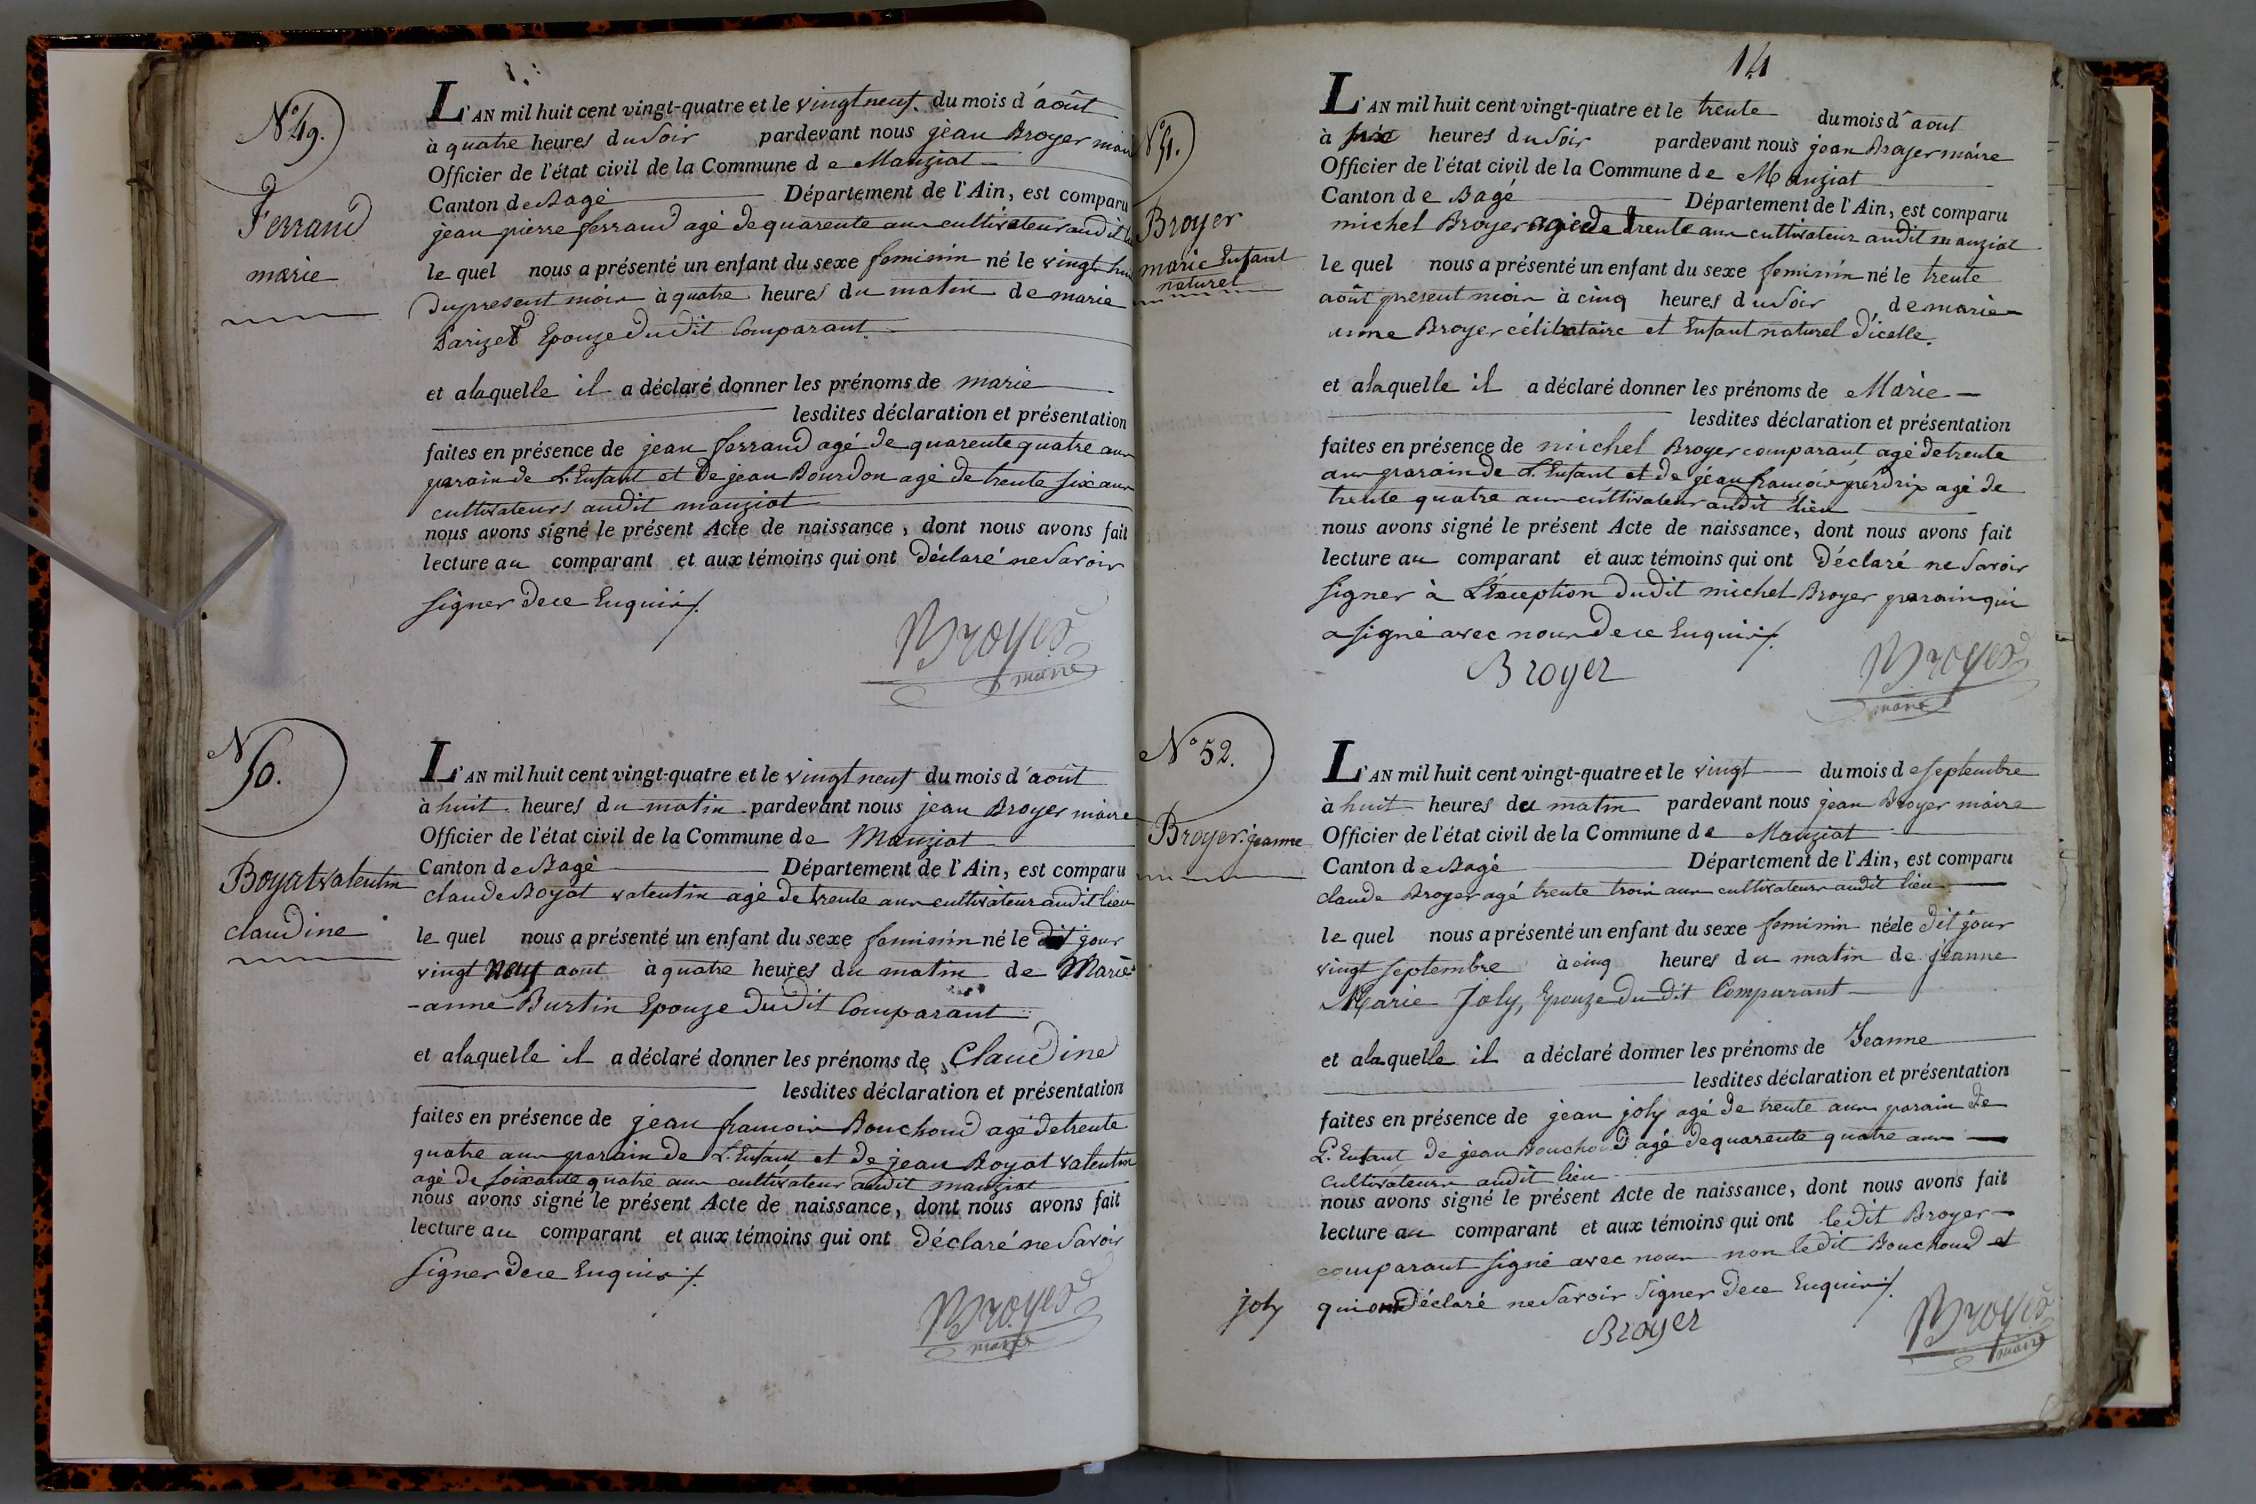 N.° 49.
Ferrand
marie
L'AN mil huit cent vingt-quatre et le vingt neuf. du mois d'août
à quatre heures du soir pardevant nous jean Broyer maire
Officier de l'état civil de la Commune de Manziat
Canton de Bagé Département de l'Ain, est comparu
jean pierre ferrand agé de quarente ans cultivateur audit
le quel nous a présenté un enfant du sexe feminin né le vingt huit
du present mois à quatre heures du matin de marie
Parizet Epouze dudit Comparant.
et alaquelle il a déclaré donner les prénoms de marie
lesdites déclaration et présentation
faites en présence de jean ferrand agé de quarente quatre ans
parain de L'Enfant et de jean Bourdon agé de trente six ans
cultivateurs audit manziat
nous avons signé le présent Acte de naissance, dont nous avons fait
lecture au comparant et aux témoins qui ont déclaré ne Savoir
signer de ce Enquis /.
Broyer
maire
N 50.
Boyat valentin
claudine
L'AN mil huit cent vingt-quatre et le vingt neuf du mois d'août
à huit heures du matin pardevant nous jean Broyer maire
Officier de l'état civil de la Commune de Manziat
Canton de Bagé Département de l'Ain, est comparu
claude Boyat valentin agé de trente ans cultivateur audit lieu
le quel nous a présenté un enfant du sexe feminin né le dit jour
vingt neuf aout à quatre heures du matin de Marie
-anne Burtin Epouze dudit Comparant
et alaquelle il a déclaré donner les prénoms de Claudine
lesdites déclaration et présentation
faites en présence de jean francois Bouchoud agé de trente
quatre ans parain de L'Enfant et de jean Boyat valentin
agé de soixante quatre ans cultivateur audit manziat
nous avons signé le présent Acte de naissance, dont nous avons fait
lecture au comparant et aux témoins qui ont déclaré ne Savoir
signer de ce Enquis /.
Broyer
maire
14
N° 51.
Broyer
marie Enfant
naturel
L'AN mil huit cent vingt-quatre et le trente du mois d'aout
à six heures du soir pardevant nous jean Broyer maire
Officier de l'état civil de la Commune de Manziat
Canton de Bagé Département de l'Ain, est comparu
michel Broyer agé de trente ans cultivateur audit manziat
le quel nous a présenté un enfant du sexe feminin né le trente
août present mois à cinq heures du soir de marie
anne Broyer célibataire et Enfant naturel d'icelle.
et alaquelle il a déclaré donner les prénoms de Marie
lesdites déclaration et présentation
faites en présence de michel Broyer comparant agé de trente
ans parain de L'Enfant et de jean francois perdrix agé de
trente quatre ans cultivateur audit lieu
nous avons signé le présent Acte de naissance, dont nous avons fait
lecture au comparant et aux témoins qui ont déclaré ne Savoir
signer à L'éxception dudit michel Broyer parain qui
a signé avec nous de ce Enquis /.
Broyer
Broyer
maire
N° 52.
Broyer. jeanne
L'AN mil huit cent vingt-quatre et le vingt du mois de septembre
à huit heures du matin pardevant nous jean Broyer maire
Officier de l'état civil de la Commune de Manziat
Canton de Bagé Département de l'Ain, est comparu
claude Broyer agé trente trois ans cultivateur audit lieu
le quel nous a présenté un enfant du sexe feminin née le dit jour
vingt septembre à cinq heures du matin de jeanne
Marie Joly, Epouze dudit Comparant
et alaquelle il a déclaré donner les prénoms de Jeanne
lesdites déclaration et présentation
faites en présence de jean joly agé de trente ans parain de
L'Enfant de jean Bouchoud agé de quarente quatre ans
cultivateurs audit lieu
nous avons signé le présent Acte de naissance, dont nous avons fait
lecture au comparant et aux témoins qui ont ledit Broyer
comparant signé avec nous non ledit Bouchoud et
qui ont déclaré ne Savoir signer de ce Enquis /.
joly
Broyer
Broyer
maire